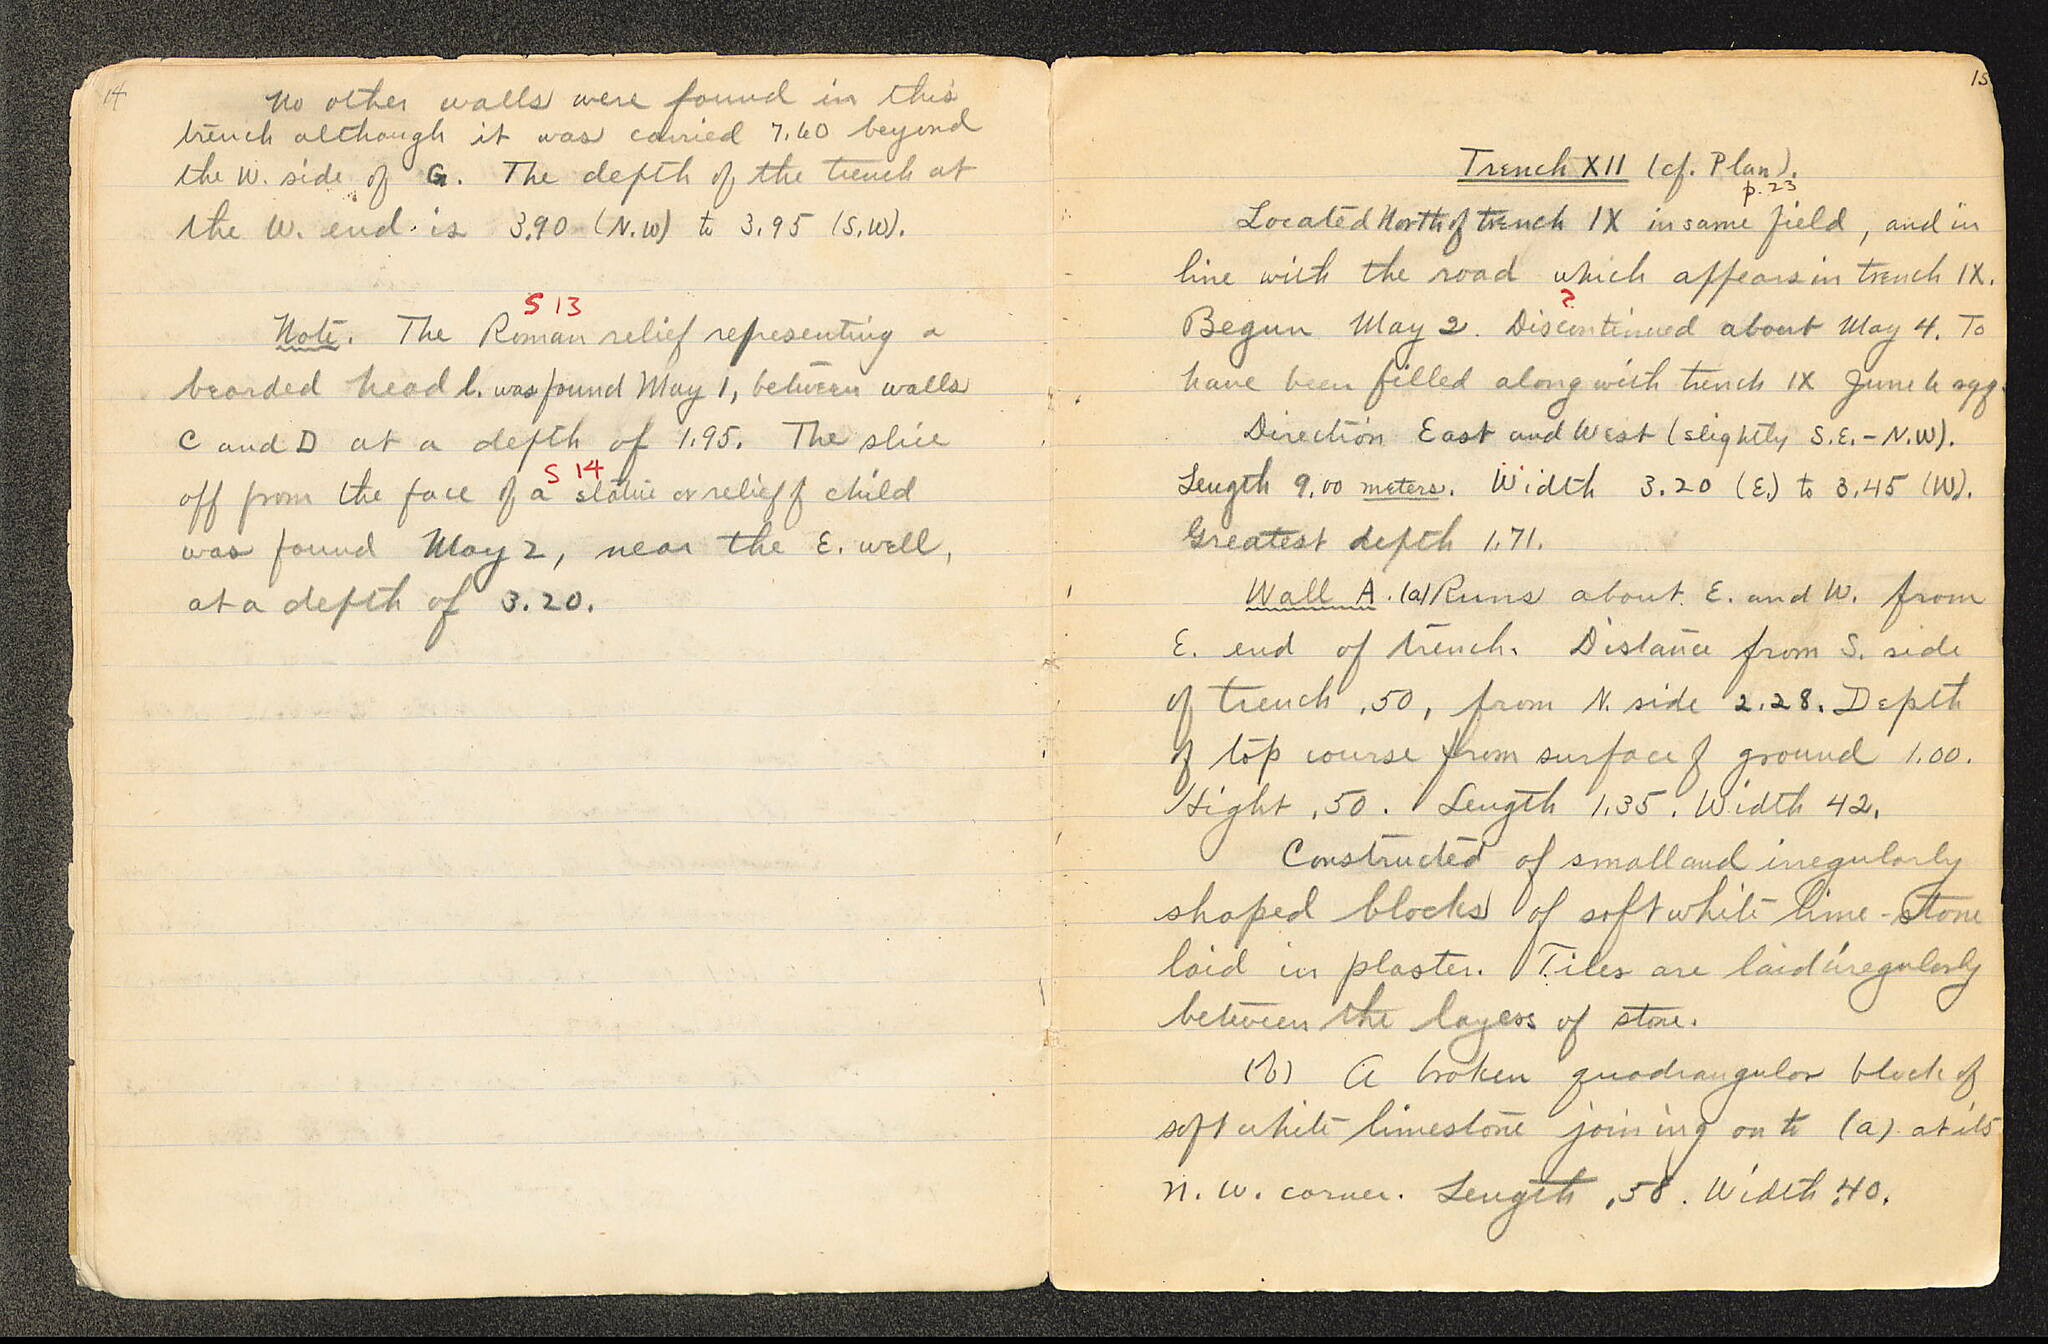 14
No other walls were found in this
trench although it was carried 7.60 beyond
the W. side of G. The depth of the trench at
the W. end is 3.90 (N.W) to 3.95 (S.W).
S 13
Note. The Roman relief representing a
bearded head l. was found May 1, between walls
C and D at a depth of 1.95. The slice
S 14
off from the face of a statue or relief of child
was found May 2, near the E. well,
at a depth of 3.20.
15
Trench XII (cf. Plan).
p. 23
Located North of trench IX in same field, and in
line with the road which appears in trench IX.
?
Begun May 2. Discontinued about May 4. To
have been filled along with trench IX June 6 sqq.
Direction East and West (slightly S.E. - N.W).
Length 9.00 meters. Width 3.20 (E.) to 3.45 (W).
Greatest depth 1.71.
Wall A. (a) Runs about E. and W. from
E. end of trench. Distance from S. side
of trench .50, from N. side 2.28. Depth
of top course from surface of ground 1.00.
Hight .50. Length 1.35. Width 42.
Constructed of small and irregularly
shaped blocks of soft white lime-stone
laid in plaster. Tiles are laid irregularly
between the layers of stone.
(b) A broken quadrangular block of
soft white limestone joining on to (a) at its
N. W. corner. Length .58. Width .40.